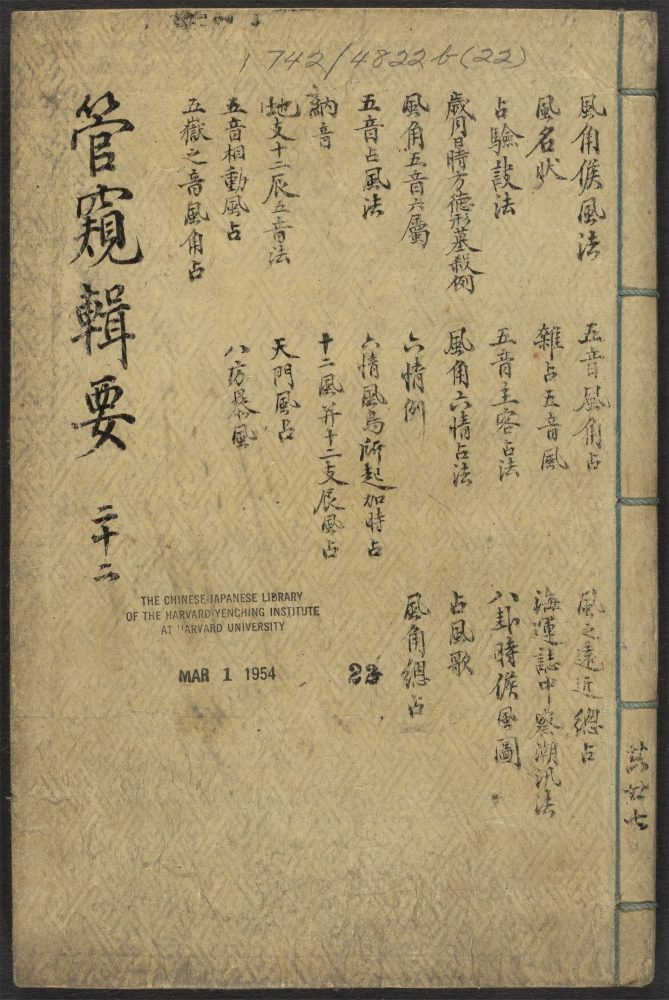 1742/4822b(22)
風角候風法
風名狀
占驗設法
歲月日時方德形墓殺例
風角五音六屬
五音占風法
納音
地支十二辰五音法
五音相動風占
五嶽之音風角占
五音風角占
雜占五音風
五音主客占法
風角六情占法
六情例
六情風鳥所起加時占
十二風并十二支辰風占
天門風占
八方暴風
風之遠近總占
海運誌中察潮汛法
八卦時候風圖
占風歌
風角總占
管窺輯要 二十二
THE CHINESE-JAPANESE LIBRARY
OF THE HARVARD-YENCHING INSTITUTE
AT HARVARD UNIVERSITY
MAR 1 1954
22